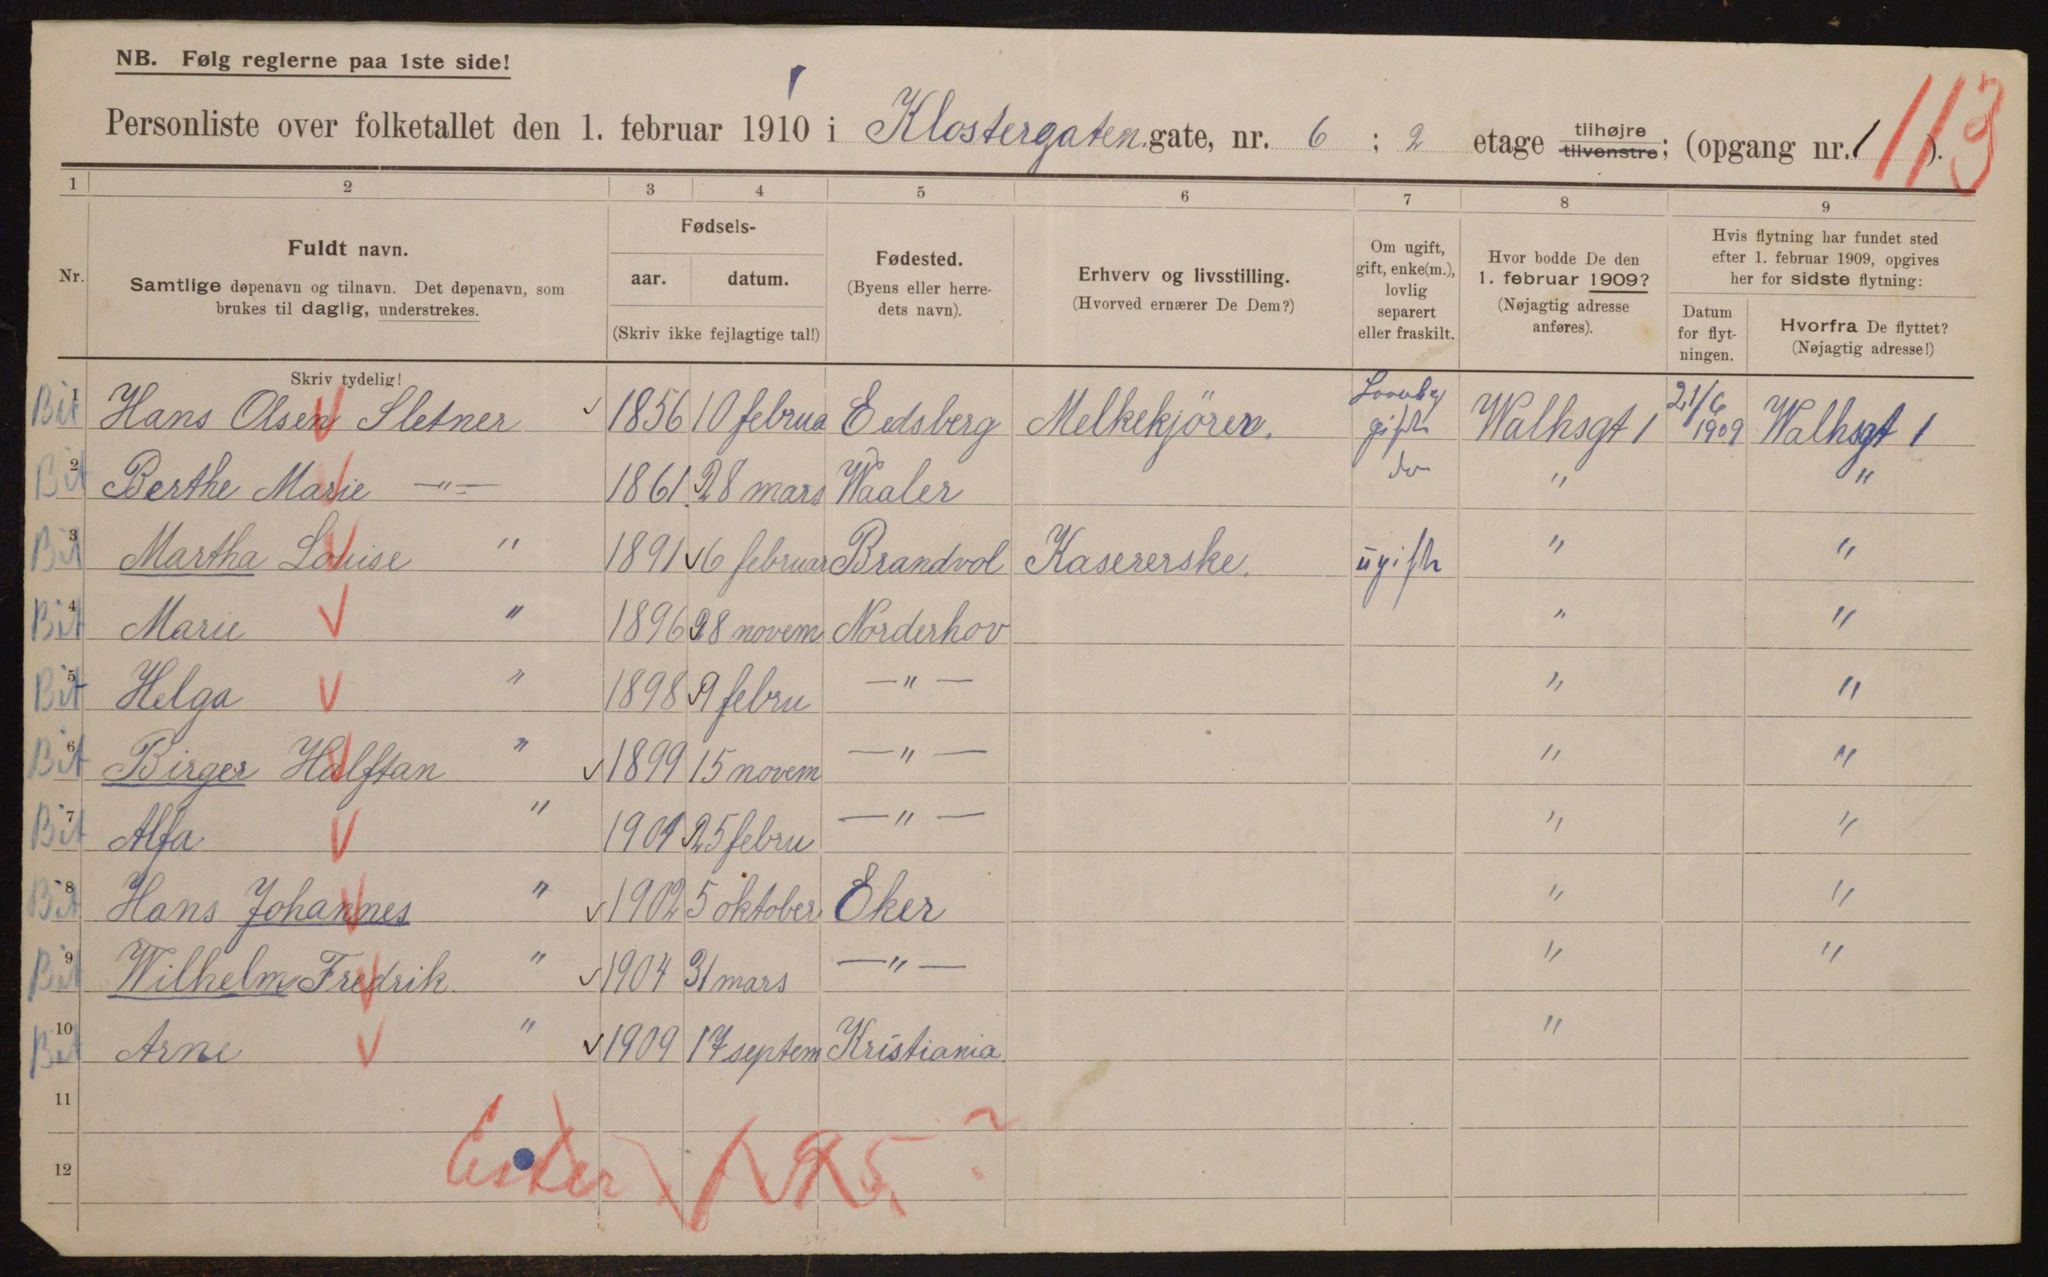 NB. Følg reglerne paa 1ste side!
Personliste over folketallet den 1. februar 1910 i Klostergaten. gate, nr. 6 ; 2 etage tilhøjre tilvenstre; (opgang nr. 1 ).
113
1 2 3 4 5 6 7 8 9
Nr.
Fuldt navn.
Samtlige døpenavn og tilnavn. Det døpenavn, som
brukes til daglig, understrekes.
Fødsels-
aar. datum.
(Skriv ikke fejlagtige tal!)
Fødested.
(Byens eller herre-
dets navn).
Erhverv og livsstilling.
(Hvorved ernærer De Dem?)
Om ugift,
gift, enke(m.),
lovlig
separert
eller fraskilt.
Hvor bodde De den
1. februar 1909?
(Nøjagtig adresse
anføres).
Hvis flytning har fundet sted
efter 1. februar 1909, opgives
her for sidste flytning:
Datum
for flyt-
ningen.
Hvorfra De flyttet?
(Nøjagtig adresse!)
Skriv tydelig!
Bit 1 Hans Olsen Sletner 1856 10 februa Eedsberg Melkekjörer. gift Walhsgt 1 21/6 1909 Walhsgt 1
Bit 2 Berthe Marie —"— 1861 28 mars Waaler do " "
Bit 3 Martha Louise " 1891 6 februar Brandvol Kasererske. ugift " "
Bit 4 Marie " 1896 28 novem Norderhov " "
Bit 5 Helga " 1898 9 febru —"— " "
Bit 6 Birger Halftan " 1899 15 novem —"— " "
Bit 7 Alfa " 1901 25 febru —"— " "
Bit 8 Hans Johannes " 1902 5 oktober Eker " "
Bit 9 Wilhelm Fredrik " 1904 31 mars —"— " "
Bit 10 Arne " 1909 17 septem Kristiania "
11
12 Ester ?